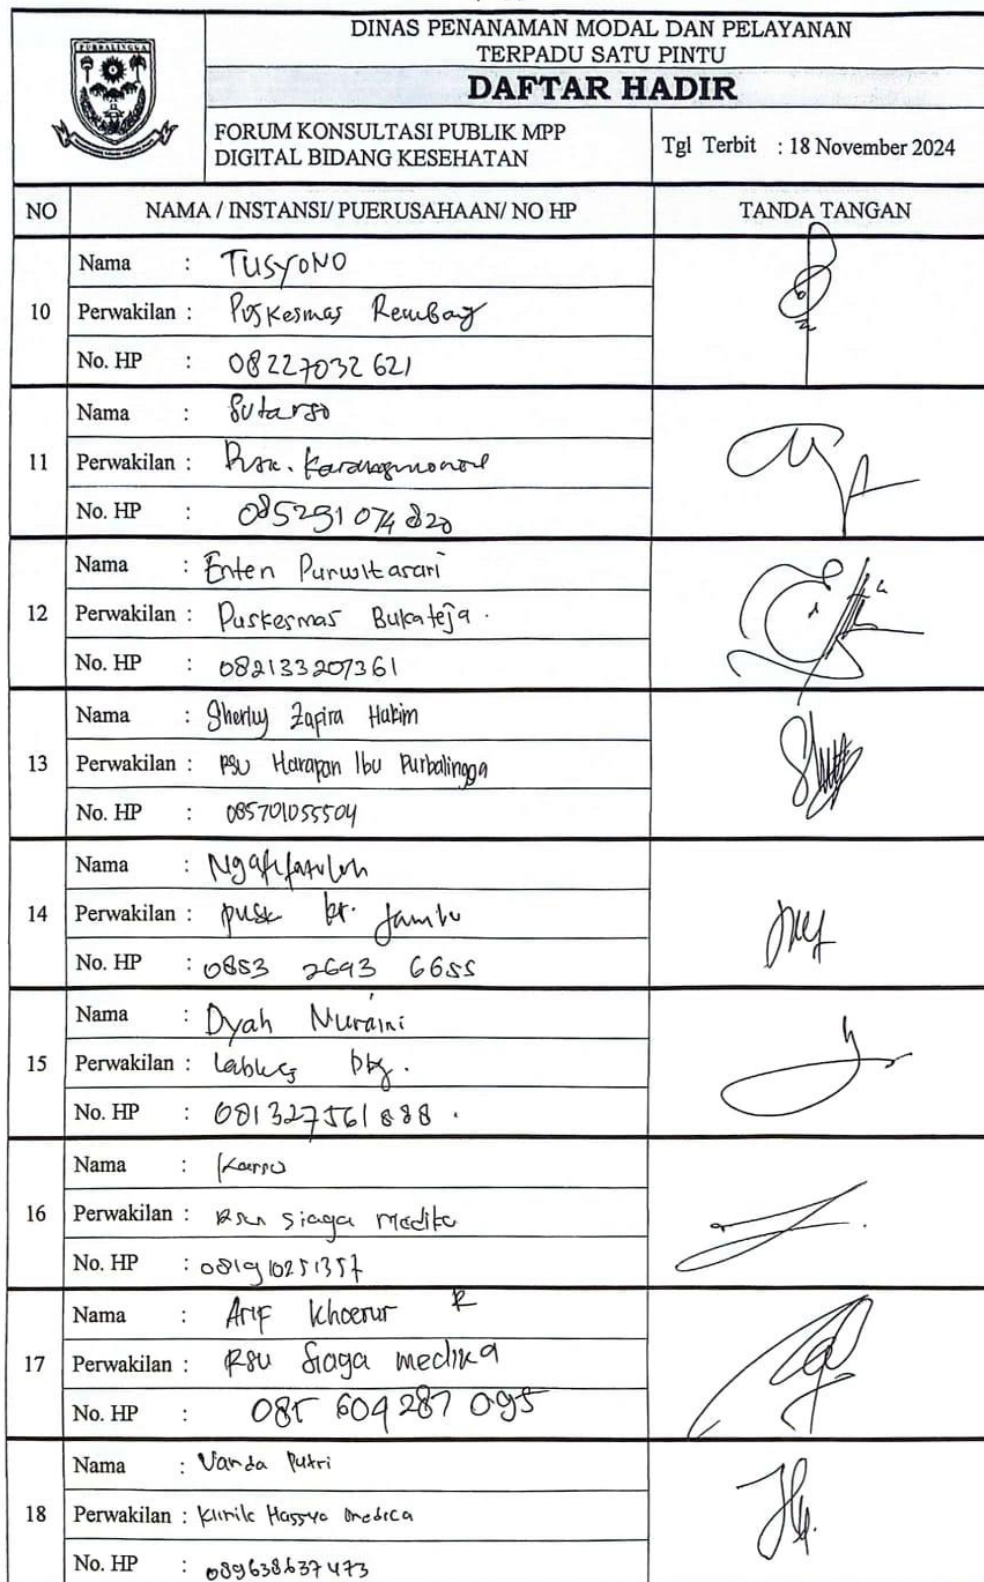 PURBALINGGA
DINAS PENANAMAN MODAL DAN PELAYANAN
TERPADU SATU PINTU
DAFTAR HADIR
FORUM KONSULTASI PUBLIK MPP
DIGITAL BIDANG KESEHATAN
Tgl Terbit : 18 November 2024
NO NAMA / INSTANSI/ PUERUSAHAAN/ NO HP TANDA TANGAN
10
Nama : TUSYONO
Perwakilan : Puskesmas Rembang
No. HP : 08227032621
11
Nama : Sutarso
Perwakilan :
No. HP : 085291074820
12
Nama : Enten Purwitasari
Perwakilan : Puskesmas Bukateja.
No. HP : 082133207361
13
Nama : Sherly Zapira Hakim
Perwakilan : RSU Harapan Ibu Purbalingga
No. HP : 085701055504
14
Nama :
Perwakilan : pusk kr. jambu
No. HP : 0853 2693 6655
15
Nama : Dyah Nuraini
Perwakilan : Labkes pbg.
No. HP : 081327561888.
16
Nama :
Perwakilan : siaga medika
No. HP : 081910251357
17
Nama : Arif Khoerur R
Perwakilan : RSU Siaga medika
No. HP : 085 604 287 095
18
Nama : Vanda Putri
Perwakilan : Klinik Hassya medica
No. HP : 089638637473